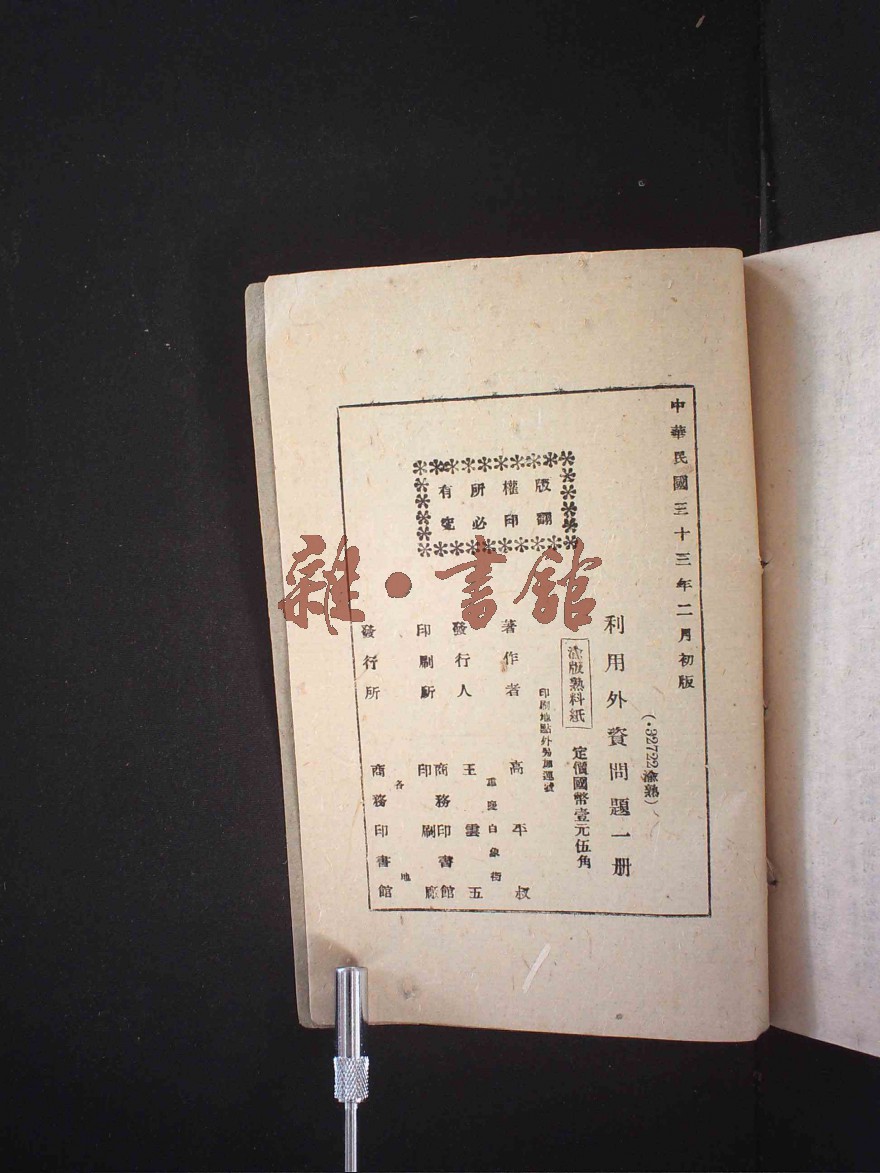 中華民國三十三年二月初版
(·32722渝熟)
利用外資問題一册
渝版熟料紙
定價國幣壹元伍角
印刷地點外另加運費
著作者 高平叔
重慶白象街
發行人 王雲五
印刷所 商務印書館
印刷廠
發行所 各地
商務印書館
版權所有
翻印必究
雜·書館